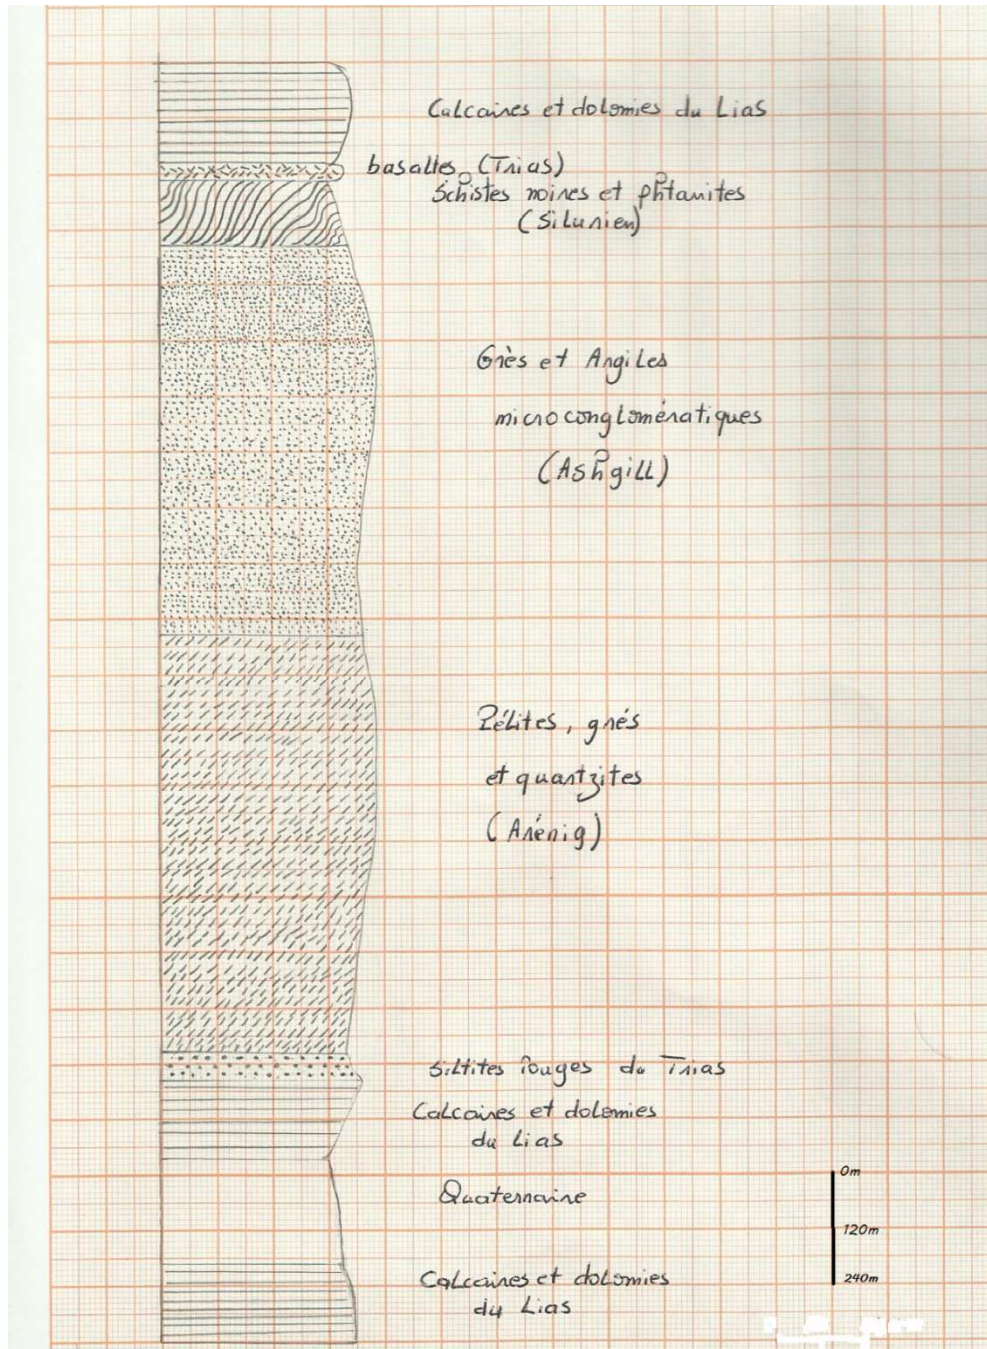 Calcaires et dolomies du Lias
basaltes (Trias)
Schistes noires et phtanites
(Silurien)
Grès et Argiles
microconglomératiques
(Ashgill)
Pélites, grés
et quartzites
(Arénig)
Siltites rouges du Trias
Calcaires et dolomies
du Lias
Quaternaire
0m
120m
240m
Calcaires et dolomies
du Lias